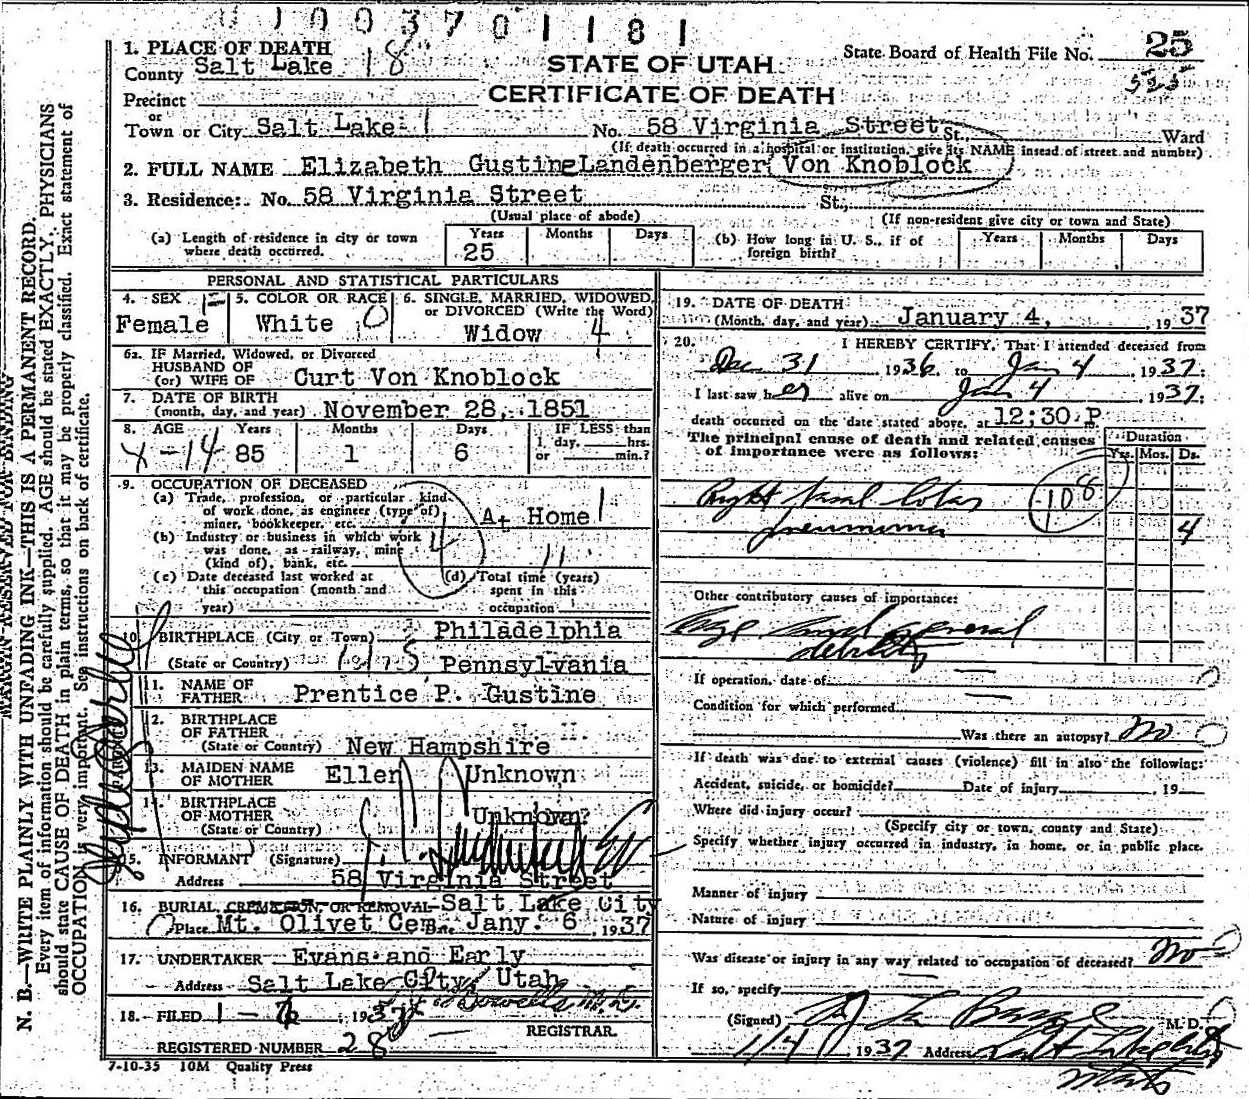 1003701181
1. PLACE OF DEATH
County Salt Lake 18
STATE OF UTAH
State Board of Health File No. 25
525
Precinct
CERTIFICATE OF DEATH
or
Town or City Salt Lake 1 No. 58 Virginia Street St., Ward
(If death occurred in a hospital or institution, give its NAME insead of street and number)
2. FULL NAME Elizabeth Gustine Landenberger Von Knoblock
3. Residence: No. 58 Virginia Street St.,
(Usual place of abode) (If non-resident give city or town and State)
(a) Length of residence in city or town where death occurred. Years 25 Months Days
(b) How long in U. S., if of foreign birth? Years Months Days
PERSONAL AND STATISTICAL PARTICULARS
4. SEX F Female
5. COLOR OR RACE White 0
6. SINGLE, MARRIED, WIDOWED, or DIVORCED (Write the Word) Widow 4
6a. IF Married, Widowed, or Divorced
HUSBAND OF
(or) WIFE OF Curt Von Knoblock
7. DATE OF BIRTH
(month, day, and year) November 28, 1851
8. AGE Years Months Days IF LESS than
4-14 85 1 6 1 day, hrs.
or min.?
9. OCCUPATION OF DECEASED
(a) Trade, profession, or particular kind
of work done, as engineer (type of)
miner, bookkeeper, etc. At Home
(b) Industry or business in which work
was done, as railway, mine
(kind of), bank, etc.
(c) Date deceased last worked at
this occupation (month and
year)
(d) Total time (years)
spent in this
occupation
10. BIRTHPLACE (City or Town) Philadelphia
(State or Country) Pennsylvania
11. NAME OF
FATHER Prentice P. Gustine
12. BIRTHPLACE
OF FATHER
(State or Country) New Hampshire
13. MAIDEN NAME
OF MOTHER Ellen Unknown
14. BIRTHPLACE
OF MOTHER Unknown?
(State or Country)
15. INFORMANT (Signature)
Address 58 Virginia Street
16. BURIAL, CREMATION, OR REMOVAL Salt Lake City
Place Mt. Olivet Cem Date Jany. 6, 1937
17. UNDERTAKER Evans and Early
Address Salt Lake City, Utah
18. FILED 1-7 1937
REGISTRAR.
REGISTERED NUMBER 28
7-10-35 10M Quality Press
19. DATE OF DEATH
(Month, day, and year) January 4, 1937
20. I HEREBY CERTIFY, That I attended deceased from
Dec 31 1936 to Jan 4, 1937:
I last saw her alive on Jan 4 1937:
death occurred on the date stated above, at 12;30 P.
The principal cause of death and related causes
of importance were as follows:
Duration
Yrs. Mos. Ds.
Right lobar 108
pneumonia 4
Other contributory causes of importance:
Age and general
debility
If operation, date of
Condition for which performed
Was there an autopsy? No
If death was due to external causes (violence) fill in also the following:
Accident, suicide, or homicide? Date of injury 19
Where did injury occur?
(Specify city or town, county and State)
Specify whether injury occurred in industry, in home, or in public place.
Manner of injury
Nature of injury
Was disease or injury in any way related to occupation of deceased? No
If so, specify
(Signed) M. D.
1/4 1937 Address Salt Lake City
Utah
MARGIN RESERVED FOR BINDING
N. B.—WRITE PLAINLY, WITH UNFADING INK—THIS IS A PERMANENT RECORD.
Every item of information should be carefully supplied. AGE should be stated EXACTLY, PHYSICIANS
should state CAUSE OF DEATH in plain terms, so that it may be properly classified. Exact statement of
OCCUPATION is very important. See instructions on back of certificate.